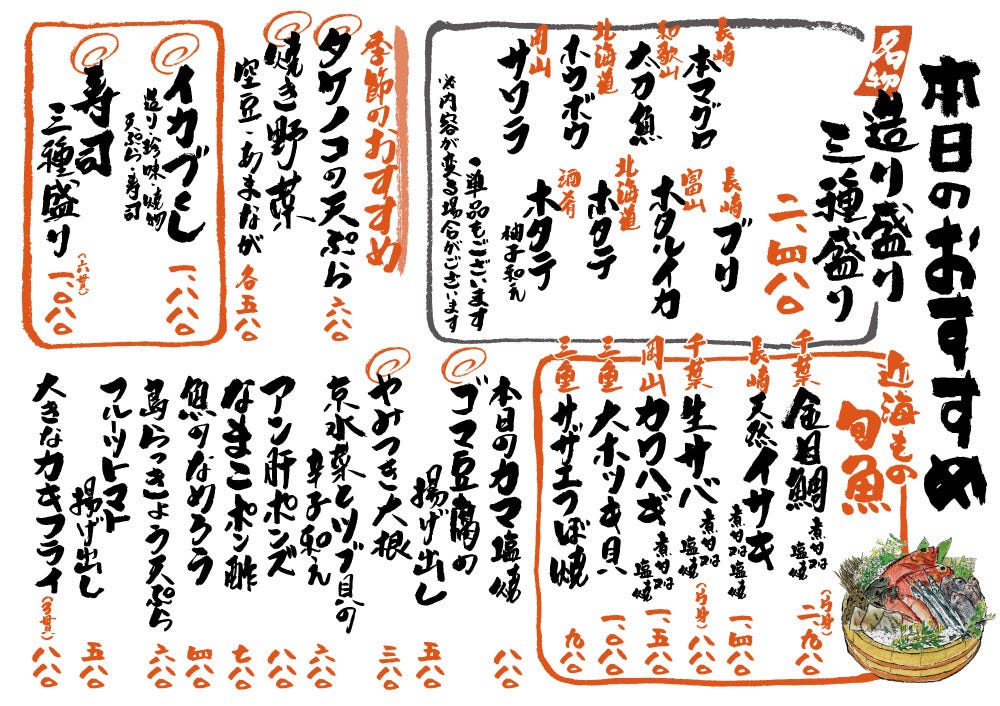 本日のおすすめ
名物
造り盛り
三種盛り
二、四八〇
長崎 本マグロ
和歌山 太刀魚
北海道 ホウボウ
岡山 サワラ
長崎 ブリ
富山 ホタルイカ
北海道 ホタテ
酒肴 ホタテ
柚子和え
・単品もございます
※内容が変る場合がございます
季節のおすすめ
タケノコの天ぷら 六八〇
焼き野菜
空豆・あまなが 各五八〇
イカづくし 一、八八〇
造り・珍味・焼物
天ぷら・寿司
寿司
三種盛り (六貫) 一、〇八〇
近海もの
旬魚
千葉 金目鯛 煮付又は塩焼 (半身) 二、九八〇
長崎 天然イサキ 煮付又は塩焼 一、四八〇
千葉 生サバ 煮付又は塩焼 (半身) 八八〇
岡山 カワハギ 煮付又は塩焼 一、五八〇
三重 大ホッキ貝 一、〇八〇
三重 サザエつぼ焼 九八〇
本日のカマ塩焼 八八〇
ゴマ豆腐の
揚げ出し 五八〇
やみつき大根 三八〇
京水菜とツブ貝の
辛子和え 六八〇
アン肝ポンズ 八八〇
なまこポン酢 七八〇
魚のなめろう 四八〇
島らっきょう天ぷら 六八〇
フルーツトマト
揚げ出し 五八〇
大きなカキフライ 八八〇